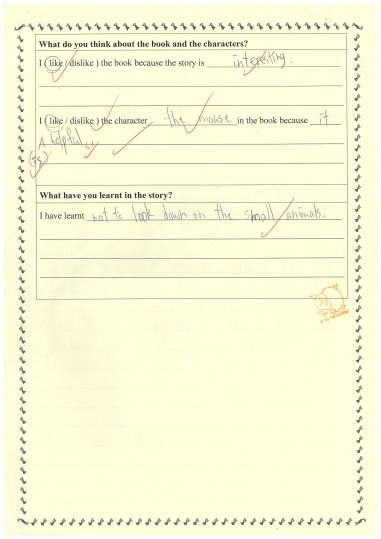 What do you think about the book and the characters?
I ( like / dislike ) the book because the story is interesting.
I ( like / dislike ) the character the mouse in the book because it
helpful
(is)
What have you learnt in the story?
I have learnt not to look down on the small animals.